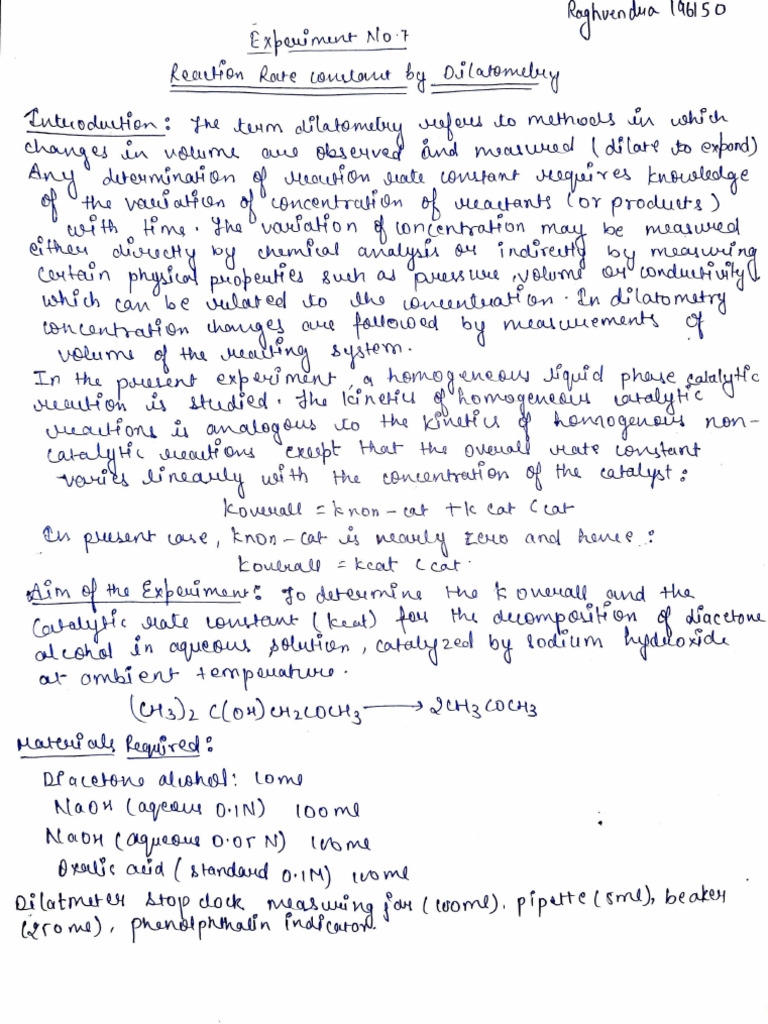 Raghvendra 196150
Experiment No.7
Reaction Rate constant by Dilatometry
Introduction: The term dilatometry refers to methods in which
changes in volume are observed and measured (dilate to expand)
Any determination of reaction rate constant requires knowledge
of the variation of concentration of reactants (or products)
with time. The variation of concentration may be measured
either directly by chemical analysis or indirectly by measuring
certain physical properties such as pressure, volume or conductivity,
which can be related to the concentration. In dilatometry
concentration changes are followed by measurements of
volume of the reacting system.
In the present experiment, a homogeneous liquid phase catalytic
reaction is studied. The kinetics of homogeneous catalytic
reactions is analogous to the kinetics of homogenous non-
catalytic reactions except that the overall rate constant
varies linearly with the concentration of the catalyst:
koverall = knon-cat + k cat Ccat
In present case, knon-cat is nearly zero and hence:
koverall = kcat Ccat.
Aim of the Experiment: To determine the k overall and the
Catalytic rate constant (kcat) for the decomposition of diacetone
alcohol in aqueous solution, catalyzed by sodium hydroxide
at ambient temperature.
(CH3)2 C(OH)CH2COCH3 ⟶ 2CH3COCH3
Materials Required:
Diacetone alcohol: 10ml
NaOH (aqeous 0.1N) 100ml
NaOH (aqueous 0.05 N) 100ml
Oxalic acid (standard 0.1M) 100ml
Dilatmeter stop clock measuring jar (100ml), pipette (5ml), beaker
(250ml), phenolphthalin indicator.